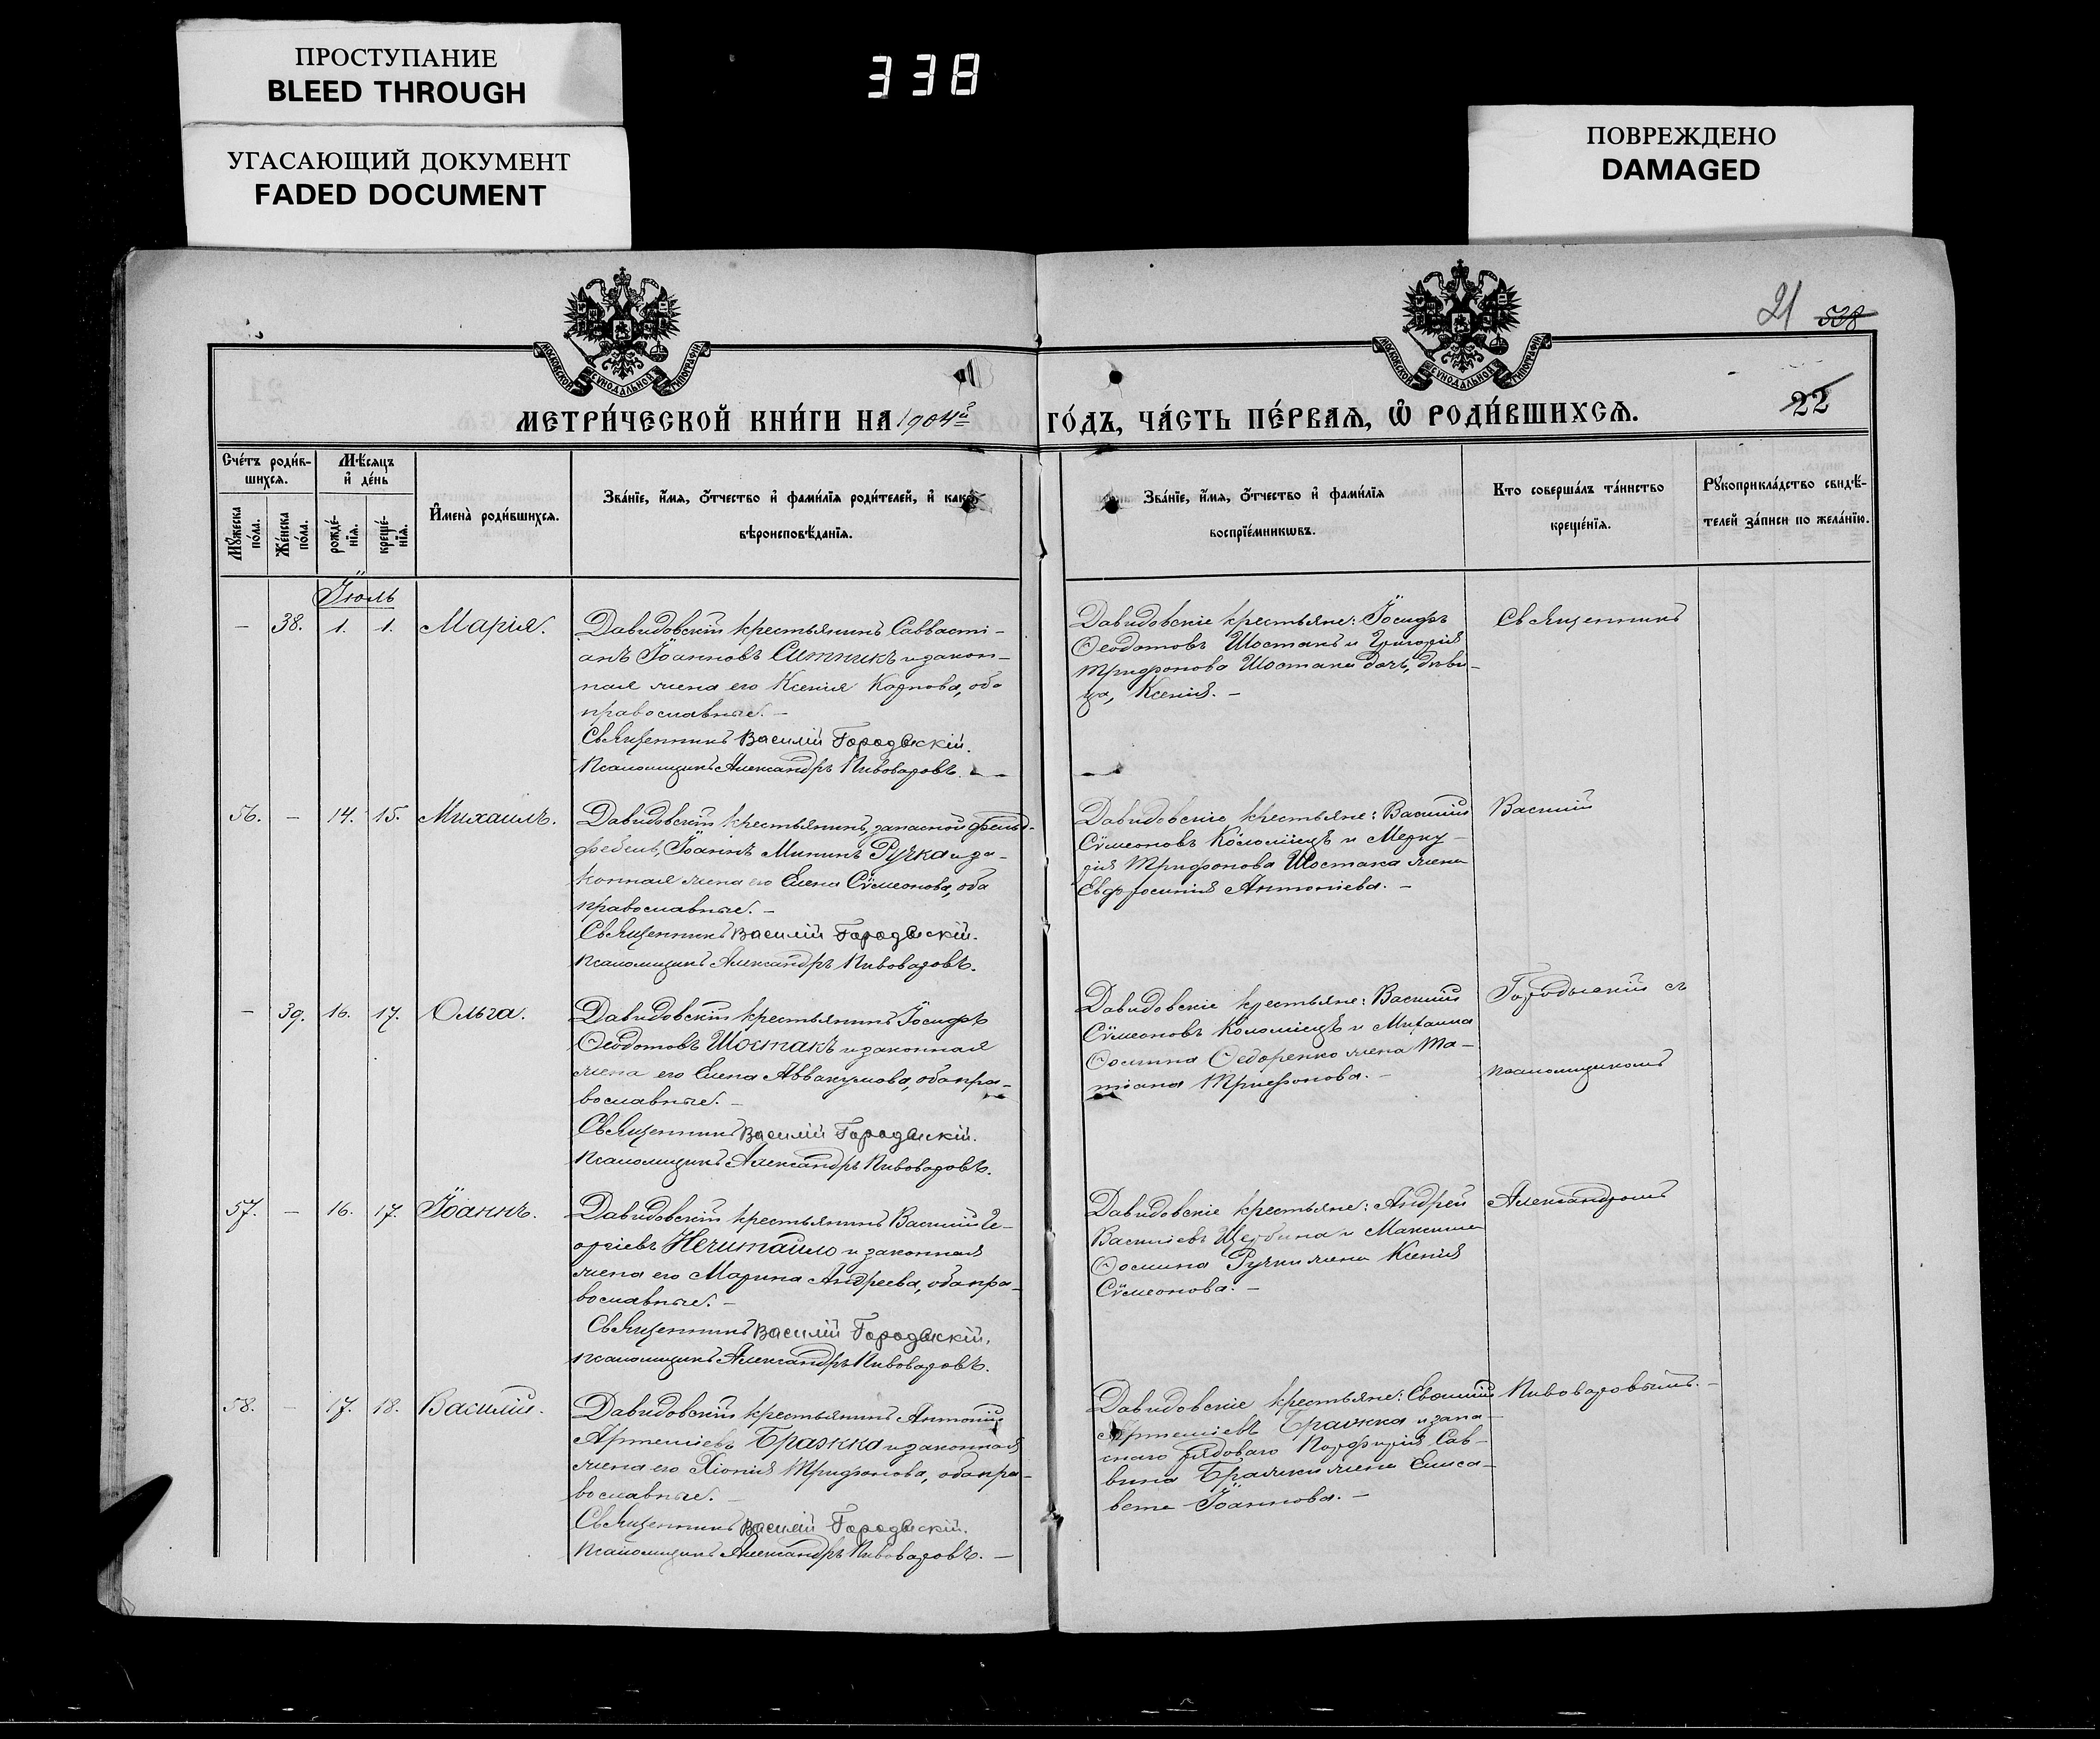 ПРОСТУПАНИЕ
BLEED THROUGH
УГАСАЮЩИЙ ДОКУМЕНТ
FADED DOCUMENT
338
ПОВРЕЖДЕНО
DAMAGED
21 538
22
МОСКОВСКОЙ СУНОДАЛЬНОЙ ТИПОГРАФІИ
МОСКОВСКОЙ СУНОДАЛЬНОЙ ТИПОГРАФІИ
МЕТРИ́ЧЕСКОЙ КНИ́ГИ НА 1904й ГО́ДЪ, ЧА́СТЬ ПЕ́РВАЯ, Ѡ РОДИ́ВШИХСЯ.
Сче́тъ роди́в-
шихся.
Мꙋжеска по́ла.
Же́нска по́ла.
Мѣ́сяцъ
и де́нь
рожде́-
нїя.
креще́-
нїя.
И҆мена̀ роди́вшихся.
Зва́нїе, и҆́мя, ѻ҆́тчество и҆ фами́лїя роди́телей, и҆ како́гѡ
вѣроисповѣ́данїя.
Зва́нїе, и҆́мя, ѻ҆́тчество и҆ фами́лїя
воспрїе́мникѡвъ.
Кто соверша́лъ та́инство
креще́нїя.
Рꙋкоприкла́дство свидѣ́-
телей за́писи по жела́нїю.
Іюль
— 38. 1. 1. Марія.
Давидовскій крестьянинъ Савваѳті-
анъ Іоанновъ Ситникъ и закон-
ная жена его Ксенія Карпова, оба
православные. —
Священникъ Василій Городыскій.
Псаломщикъ Александръ Пивоваровъ. —
Давидовскіе крестьяне: Іосифъ
Ѳеодотовъ Шостакъ и Григорія
Трифонова Шостака дочь, дѣви-
ца, Ксенія. —
Священникъ
56. — 14. 15. Михаилъ.
Давидовскій крестьянинъ, запасной фельд-
фебель, Іоаннъ Мининъ Ручка и за-
конная жена его Елена Сѵмеонова, оба
православные. —
Священникъ Василій Городыскій.
Псаломщикъ Александръ Пивоваровъ.
Давидовскіе крестьяне: Василій
Сѵмеоновъ Коломіецъ и Мерку-
рія Трифонова Шостака жена
Евфросинія Антоніева. —
Василій
— 39. 16. 17. Ольга.
Давидовскій крестьянинъ Іосифъ
Ѳеодотовъ Шостакъ и законная
жена его Елена Аввакумова, оба пра-
вославные. —
Священникъ Василій Городыскій.
Псаломщикъ Александръ Пивоваровъ.
Давидовскіе крестьяне: Василій
Сѵмеоновъ Коломіецъ и Михаила
Ѳомина Ѳедоренко жена Та-
тіана Трифонова. —
Городыскій съ
псаломщикомъ
57. — 16. 17. Іоаннъ.
Давидовскій крестьянинъ Василій Ге-
оргіевъ Нечитайло и законная
жена его Марина Андреева, оба пра-
вославные. —
Священникъ Василій Городыскій.
Псаломщикъ Александръ Пивоваровъ.
Давидовскіе крестьяне: Андрей
Василіевъ Щербина и Максима
Ѳомина Ручки жена Ксенія
Сѵмеонова. —
Александромъ
58. — 17. 18. Василій.
Давидовскій крестьянинъ Антоній
Артеміевъ Бражка и законная
жена его Хіонія Трифонова, оба пра-
вославные. —
Священникъ Василій Городыскій.
Псаломщикъ Александръ Пивоваровъ. —
Давидовскіе крестьяне:
Артеміевъ Бражка и запа-
снаго рядоваго Порфирія Сав-
вина Бражки жена Елиса-
вета Іоаннова. —
Пивоваровымъ. —